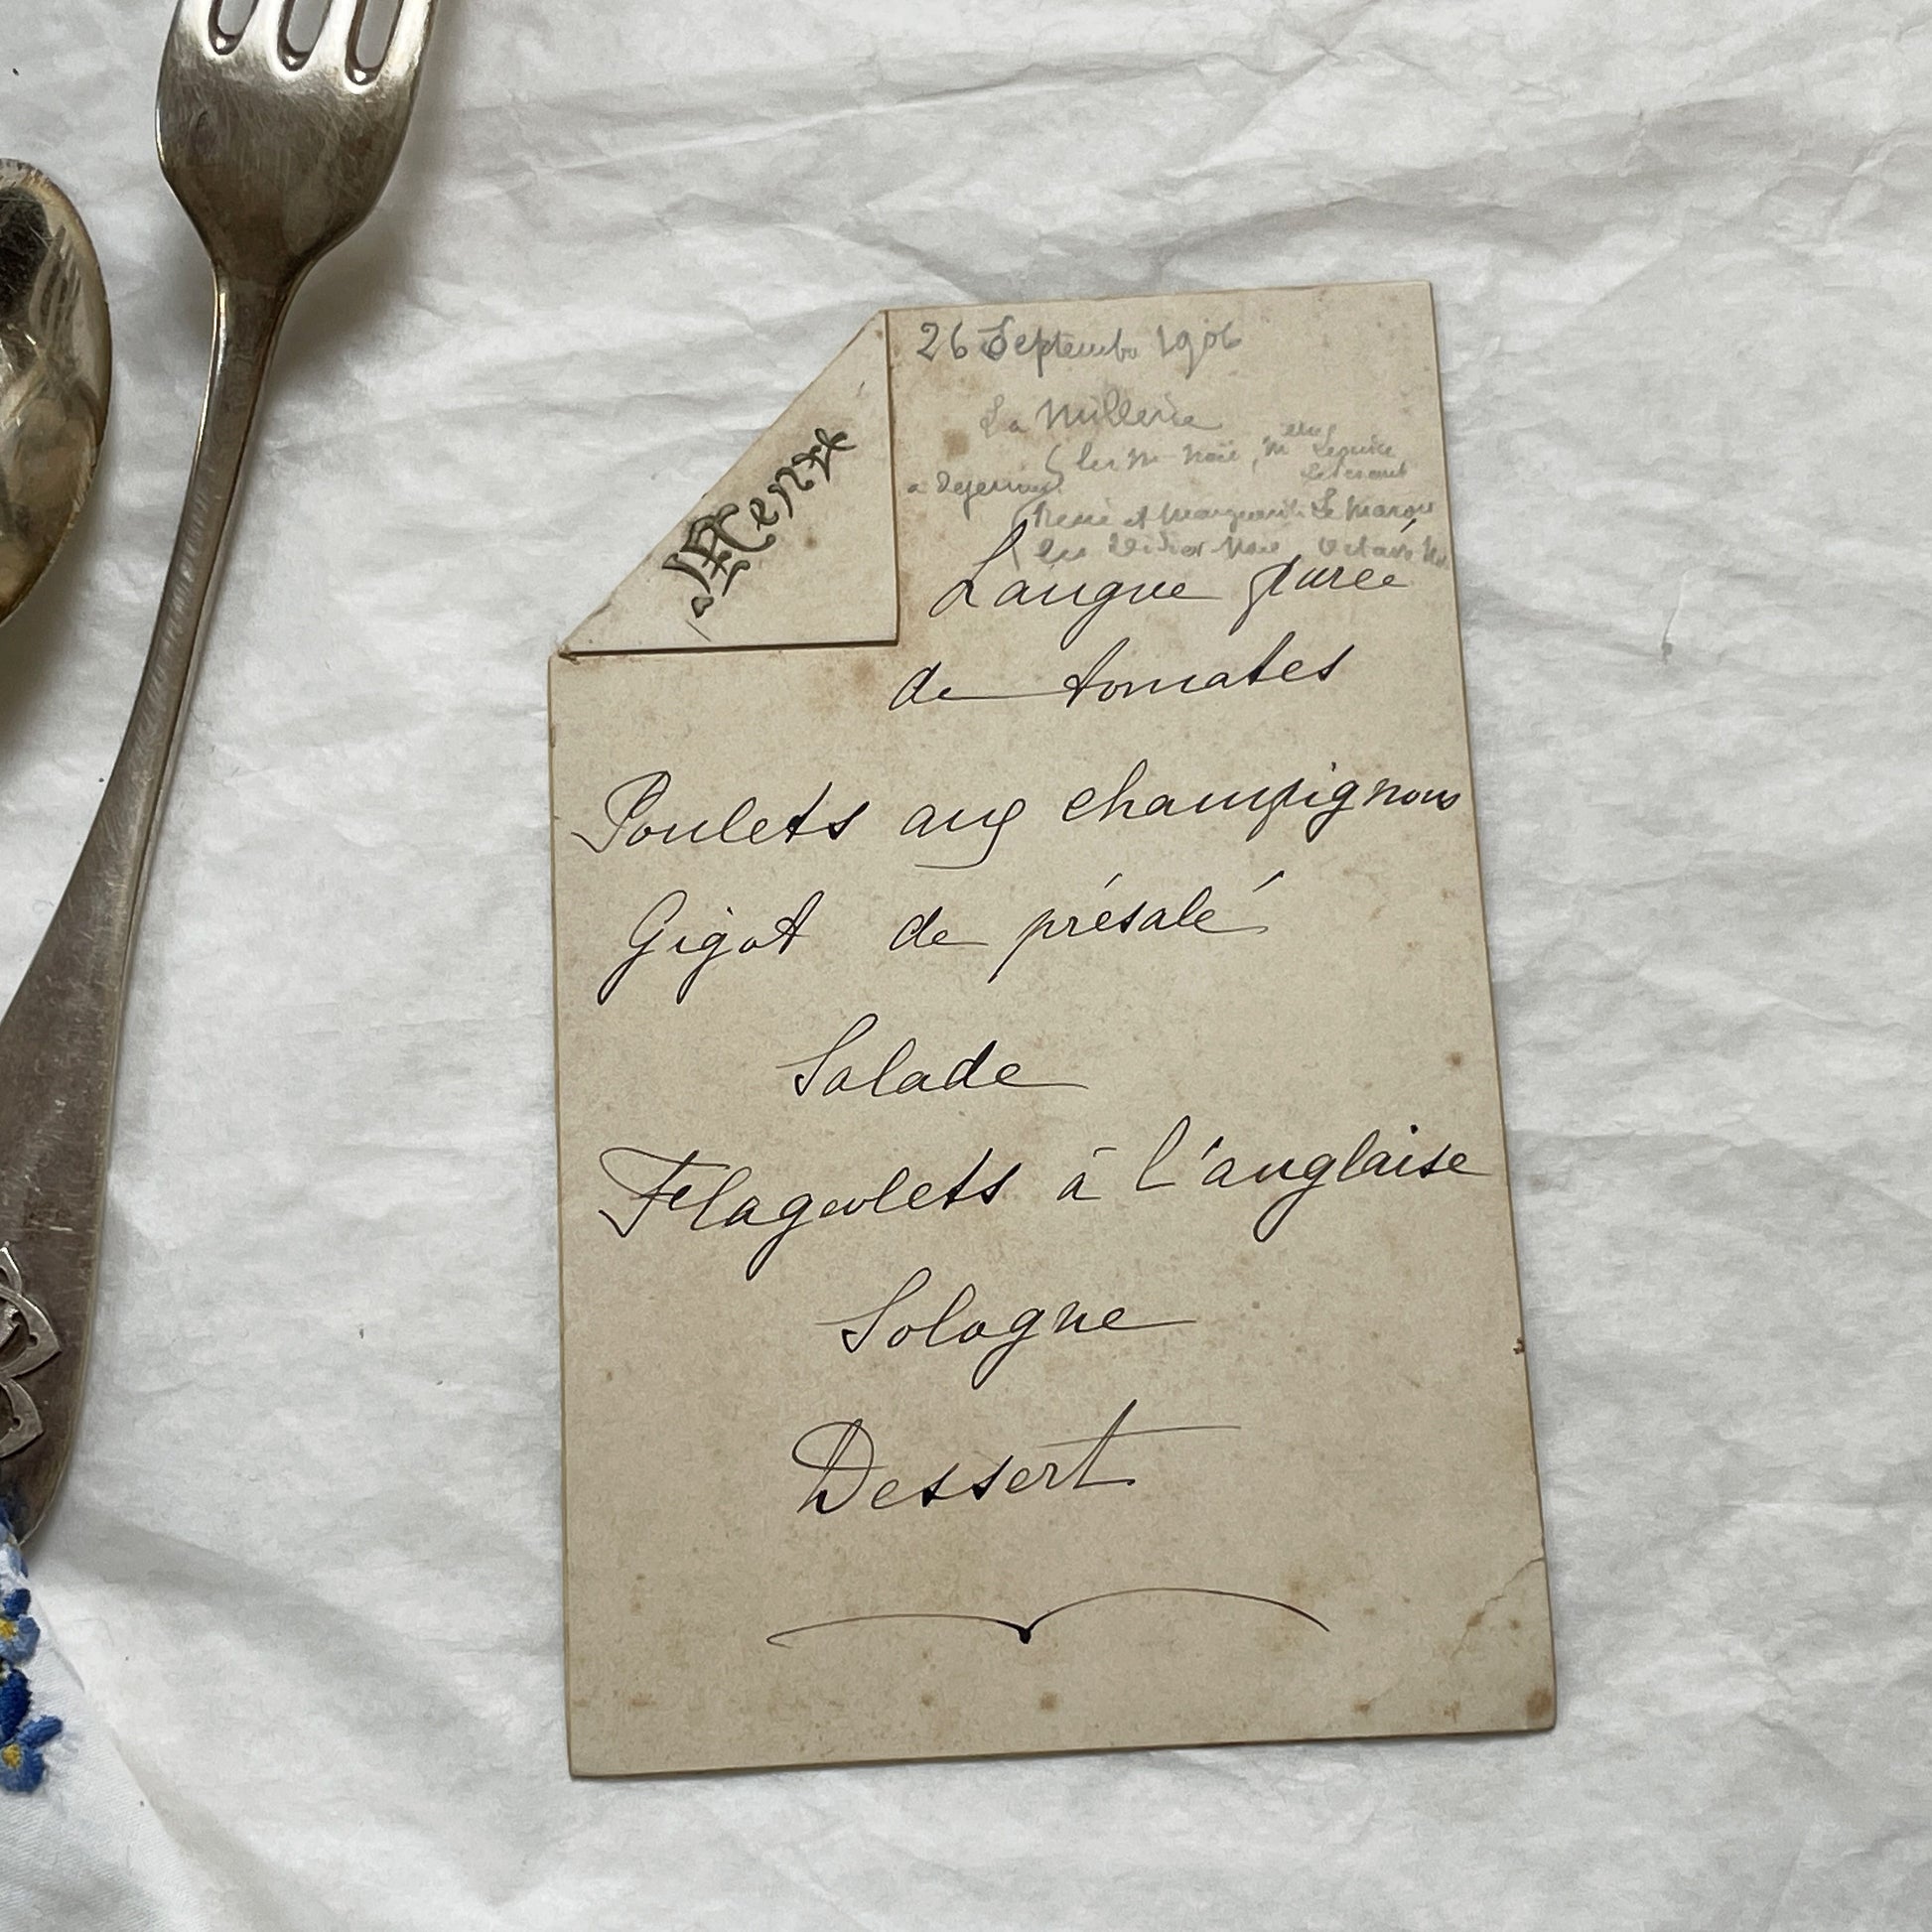 Menu
26 Septembre 1906
La Millerie
à dejeuner
René et Marguerite Le
Langue purée
de tomates
Poulets aux champignons
Gigot de présalé
Salade
Flageolets à l'anglaise
Sologne
Dessert